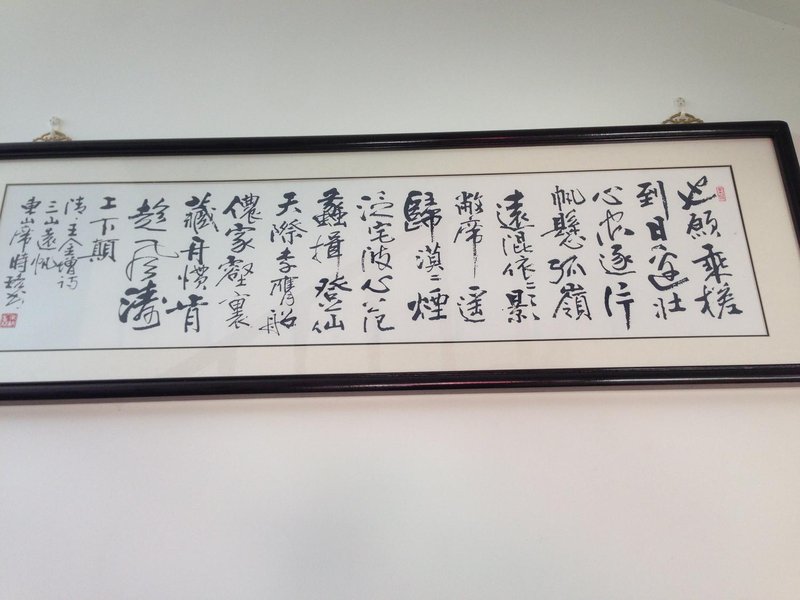 也願乘槎
到日邊壯
心逐片
帆懸孤嶺
遠混依依影
敝席遥
歸漠漠煙
泛宅波心范
蠡楫登仙
天際李膺船
儂家壑裏
藏舟慣肯
趁風濤
上下顛
清·王金增詩
三山遠帆
東山席時書